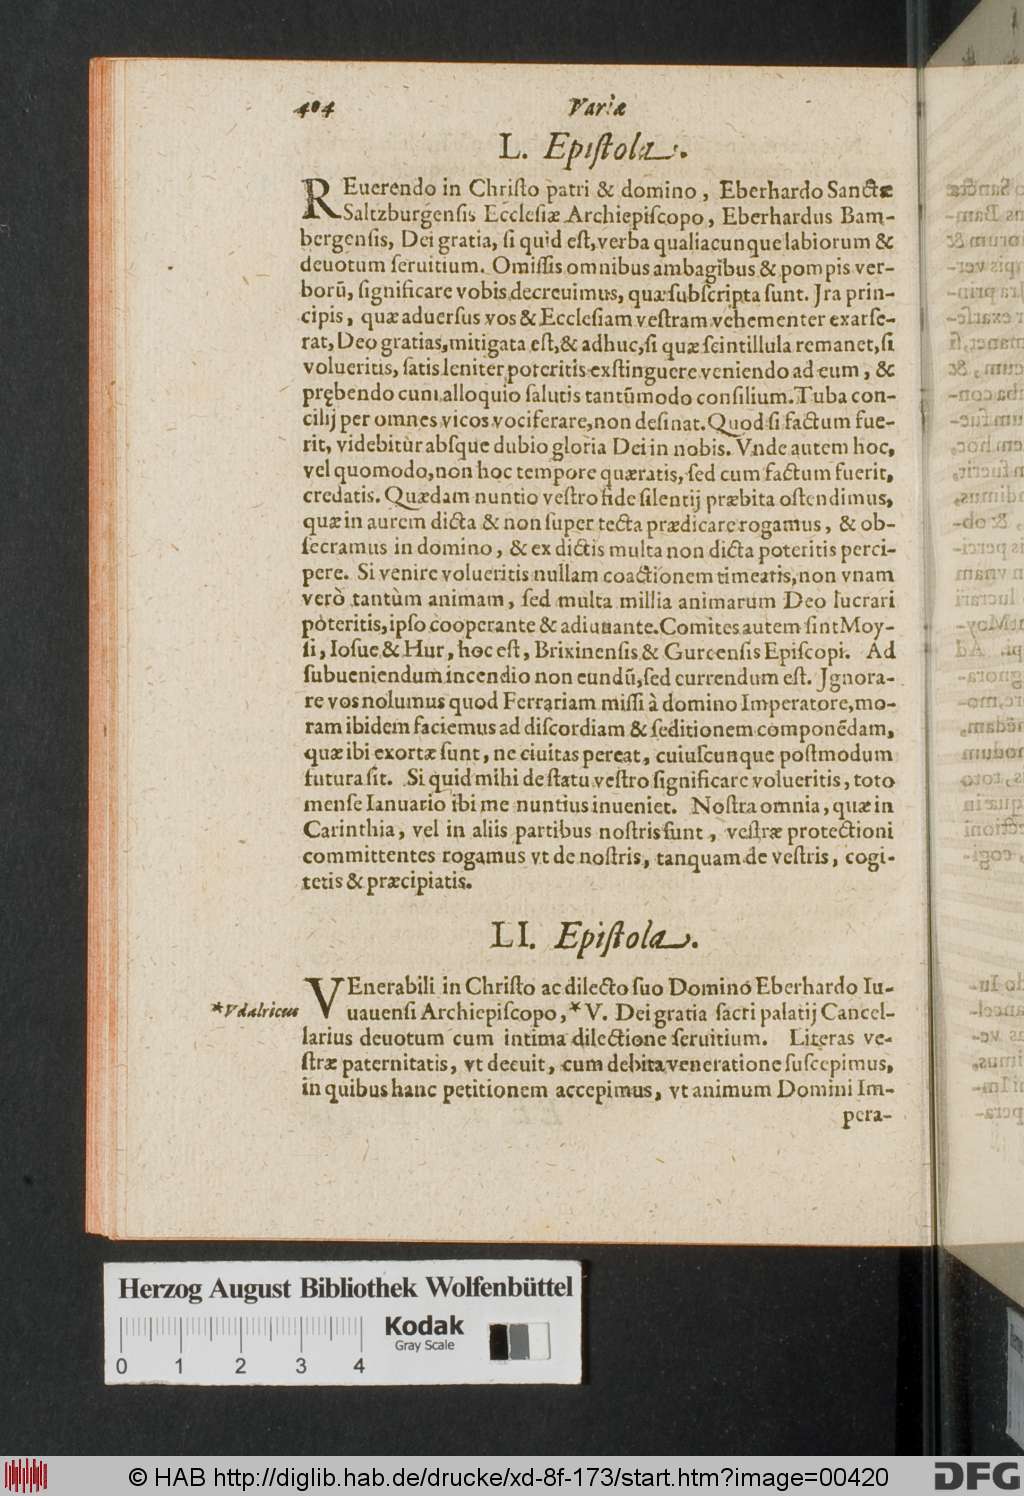 404 Variæ
L. Epiſtola.
REuerendo in Chriſto patri & domino, Eberhardo Sanctæ
Saltzburgenſis Eccleſiæ Archiepiſcopo, Eberhardus Bam-
bergenſis, Dei gratia, ſi quid eſt, verba qualiacunque labiorum &
deuotum ſeruitium. Omiſſis omnibus ambagibus & pompis ver-
borũ, ſignificare vobis decreuimus, quæ ſubſcripta ſunt. Jra prin-
cipis, quæ aduerſus vos & Eccleſiam veſtram vehementer exarſe-
rat, Deo gratias, mitigata eſt, & adhuc, ſi quæ ſcintillula remanet, ſi
volueritis, ſatis leniter poteritis exſtinguere veniendo ad eum, &
prębendo cum alloquio ſalutis tantũmodo conſilium. Tuba con-
cilij per omnes vicos vociferare, non deſinat. Quod ſi factum fue-
rit, videbitùr abſque dubio gloria Dei in nobis. Vnde autem hoc,
vel quomodo, non hoc tempore quæratis, ſed cum factum fuerit,
credatis. Quædam nuntio veſtro fide ſilentij præbita oſtendimus,
quæ in aurem dicta & non ſuper tecta prædicare rogamus, & ob-
ſecramus in domino, & ex dictis multa non dicta poteritis perci-
pere. Si venire volueritis nullam coactionem timeatis, non vnam
verò tantùm animam, ſed multa millia animarum Deo lucrari
poteritis, ipſo cooperante & adiuuante. Comites autem ſint Moy-
ſi, Ioſue & Hur, hoc eſt, Brixinenſis & Gurcenſis Epiſcopi. Ad
ſubueniendum incendio non eundũ, ſed currendum eſt. Jgnora-
re vos nolumus quod Ferrariam miſſi à domino Imperatore, mo-
ram ibidem faciemus ad diſcordiam & ſeditionem componẽdam,
quæ ibi exortæ ſunt, ne ciuitas pereat, cuiuſcunque poſtmodum
futura ſit. Si quid mihi de ſtatu veſtro ſignificare volueritis, toto
menſe Ianuario ibi me nuntius inueniet. Noſtra omnia, quæ in
Carinthia, vel in aliis partibus noſtris ſunt, veſtræ protectioni
committentes rogamus vt de noſtris, tanquam de veſtris, cogi-
tetis & præcipiatis.
LI. Epiſtola.
VEnerabili in Chriſto ac dilecto ſuo Domino Eberhardo Iu-
*Vdalricus uauenſi Archiepiſcopo, *V. Dei gratia ſacri palatij Cancel-
larius deuotum cum intima dilectione ſeruitium. Literas ve-
ſtræ paternitatis, vt decuit, cum debita veneratione ſuſcepimus,
in quibus hanc petitionem accepimus, vt animum Domini Im-
pera-
Herzog August Bibliothek Wolfenbüttel
Kodak
Gray Scale
0 1 2 3 4
© HAB http://diglib.hab.de/drucke/xd-8f-173/start.htm?image=00420
DFG